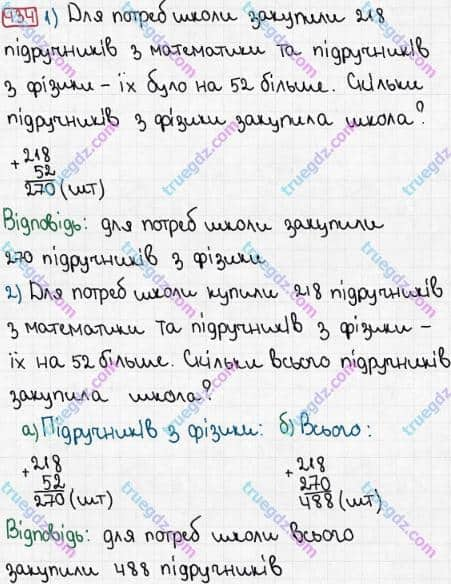 434 1) Для потреб школи закупили 218
підручників з математики та підручників
з фізики – їх було на 52 більше. Скільки
підручників з фізики закупила школа?
+218
52
270 (шт)
Відповідь: для потреб школи закупили
270 підручників з фізики
2) Для потреб школи купили 218 підручників
з математики та підручників з фізики –
їх на 52 більше. Скільки всього підручників
закупила школа?
а) Підручників з фізики: б) Всього:
+218 +218
52 270
270 (шт) 488 (шт)
Відповідь: для потреб школи всього
закупили 488 підручників
truegdz.com